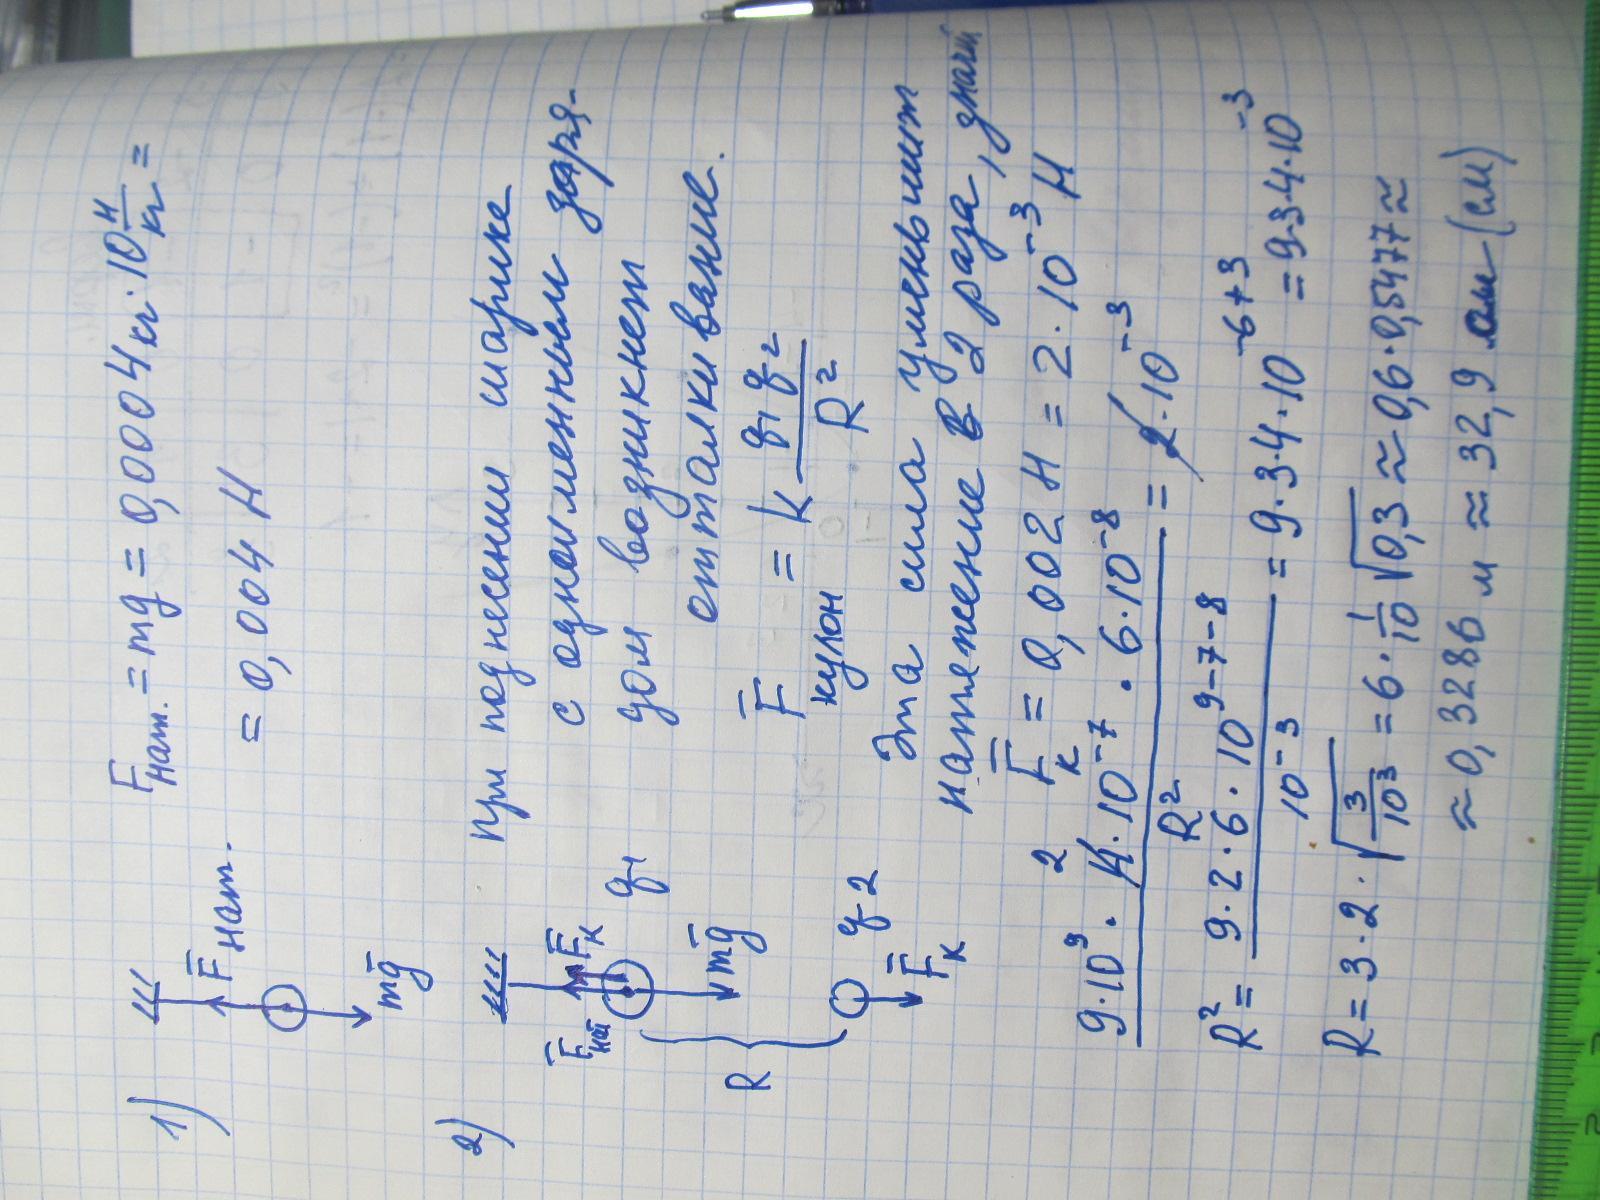 1) F̅нат. = mg = 0,0004 кг · 10 Н/кг =
= 0,004 Н
F̅нат.
m̅g
2) При поднесении шарика
с одноименным заря-
дом возникнет
отталкивание.
F̅нат F̅к q1
m̅g
R
q2
F̅к
F̅кулон = k q1 q2 / R²
Эта сила уменьшит
натяжение в 2 раза, значит
F̅к = 0,002 Н = 2 · 10⁻³ Н
9·10⁹ · 4·10⁻⁷ · 6·10⁻⁸ / R² = 2·10⁻³
2
R² = 9·2·6·10⁹⁻⁷⁻⁸ / 10⁻³ = 9·3·4·10⁻⁶⁺³ = 9·3·4·10⁻³
R = 3·2·√(3/10³) = 6·1/10 √0,3 ≈ 0,6·0,5477 ≈
≈ 0,3286 м ≈ 32,9 (см)